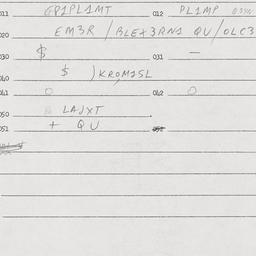 011 GP1PL1MT 012 PL1MP
020 EM3R / BLEX3RNS QU / OLC3
030 $ 031 —
040 $ ) KROM15L
041 0 042 0
050 LAJXT .
051 + QU 052